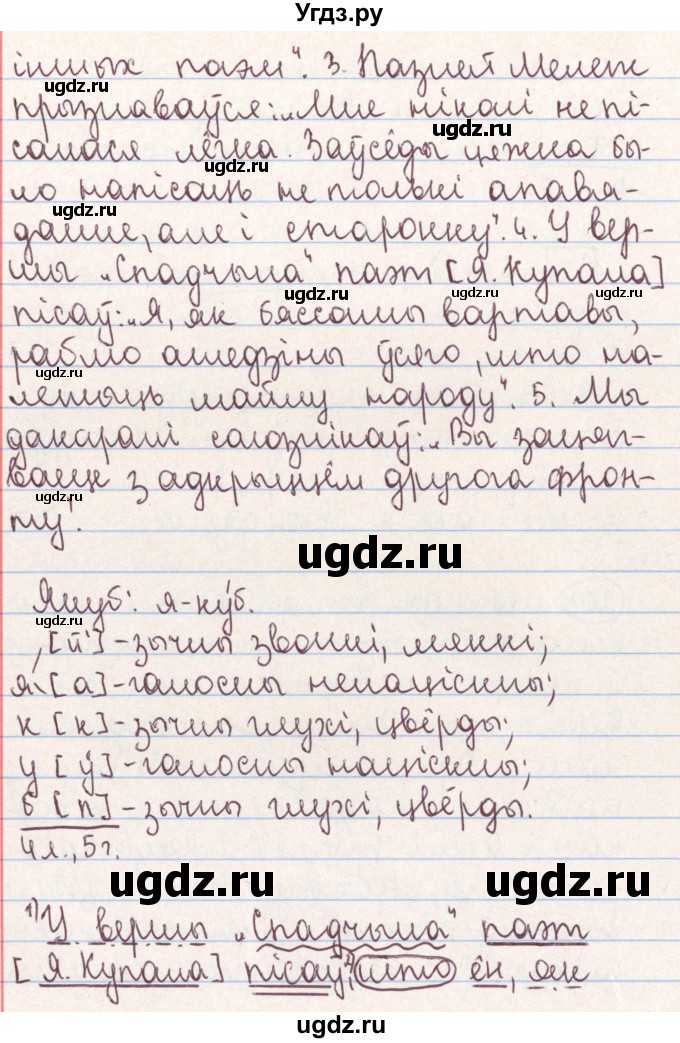 Угдз.ру
іншых паэм". 3. Казімеж Мележ
прызнаваўся: „Мне ніколі не пі-
ugdz.ru
салася лёгка. Заўсёды цяжка бы-
ugdz.ru
ло напісаць не толькі апавя-
ugdz.ru
данне, але і старонку". 4. У вер-
шы „Спадчына" паэт [Я. Купала]
ugdz.ru ugdz.ru
пісаў: „Я, як бяссонны вартавы,
раблю агледзіны ўсяго, што на-
ugdz.ru
лежыць майму народу". 5. Мы
дакаралі саюзнікаў: „Вы зацяг-
ваеце з адкрыццём другога фрон-
ugdz.ru
ту".
ugdz.ru
Якуб: я-ку́б.
[й'] - зычны звонкі, мяккі;
я [а] - галосны ненаціскны;
к [к] - зычны глухі, цвёрды;
у [у́] - галосны націскны;
б [п] - зычны глухі, цвёрды.
4 л., 5 г.
ugdz.ru ugdz.ru
1) У вершы „Спадчына" паэт
[Я. Купала] пісаў, 2) што ён, як
ugdz.ru